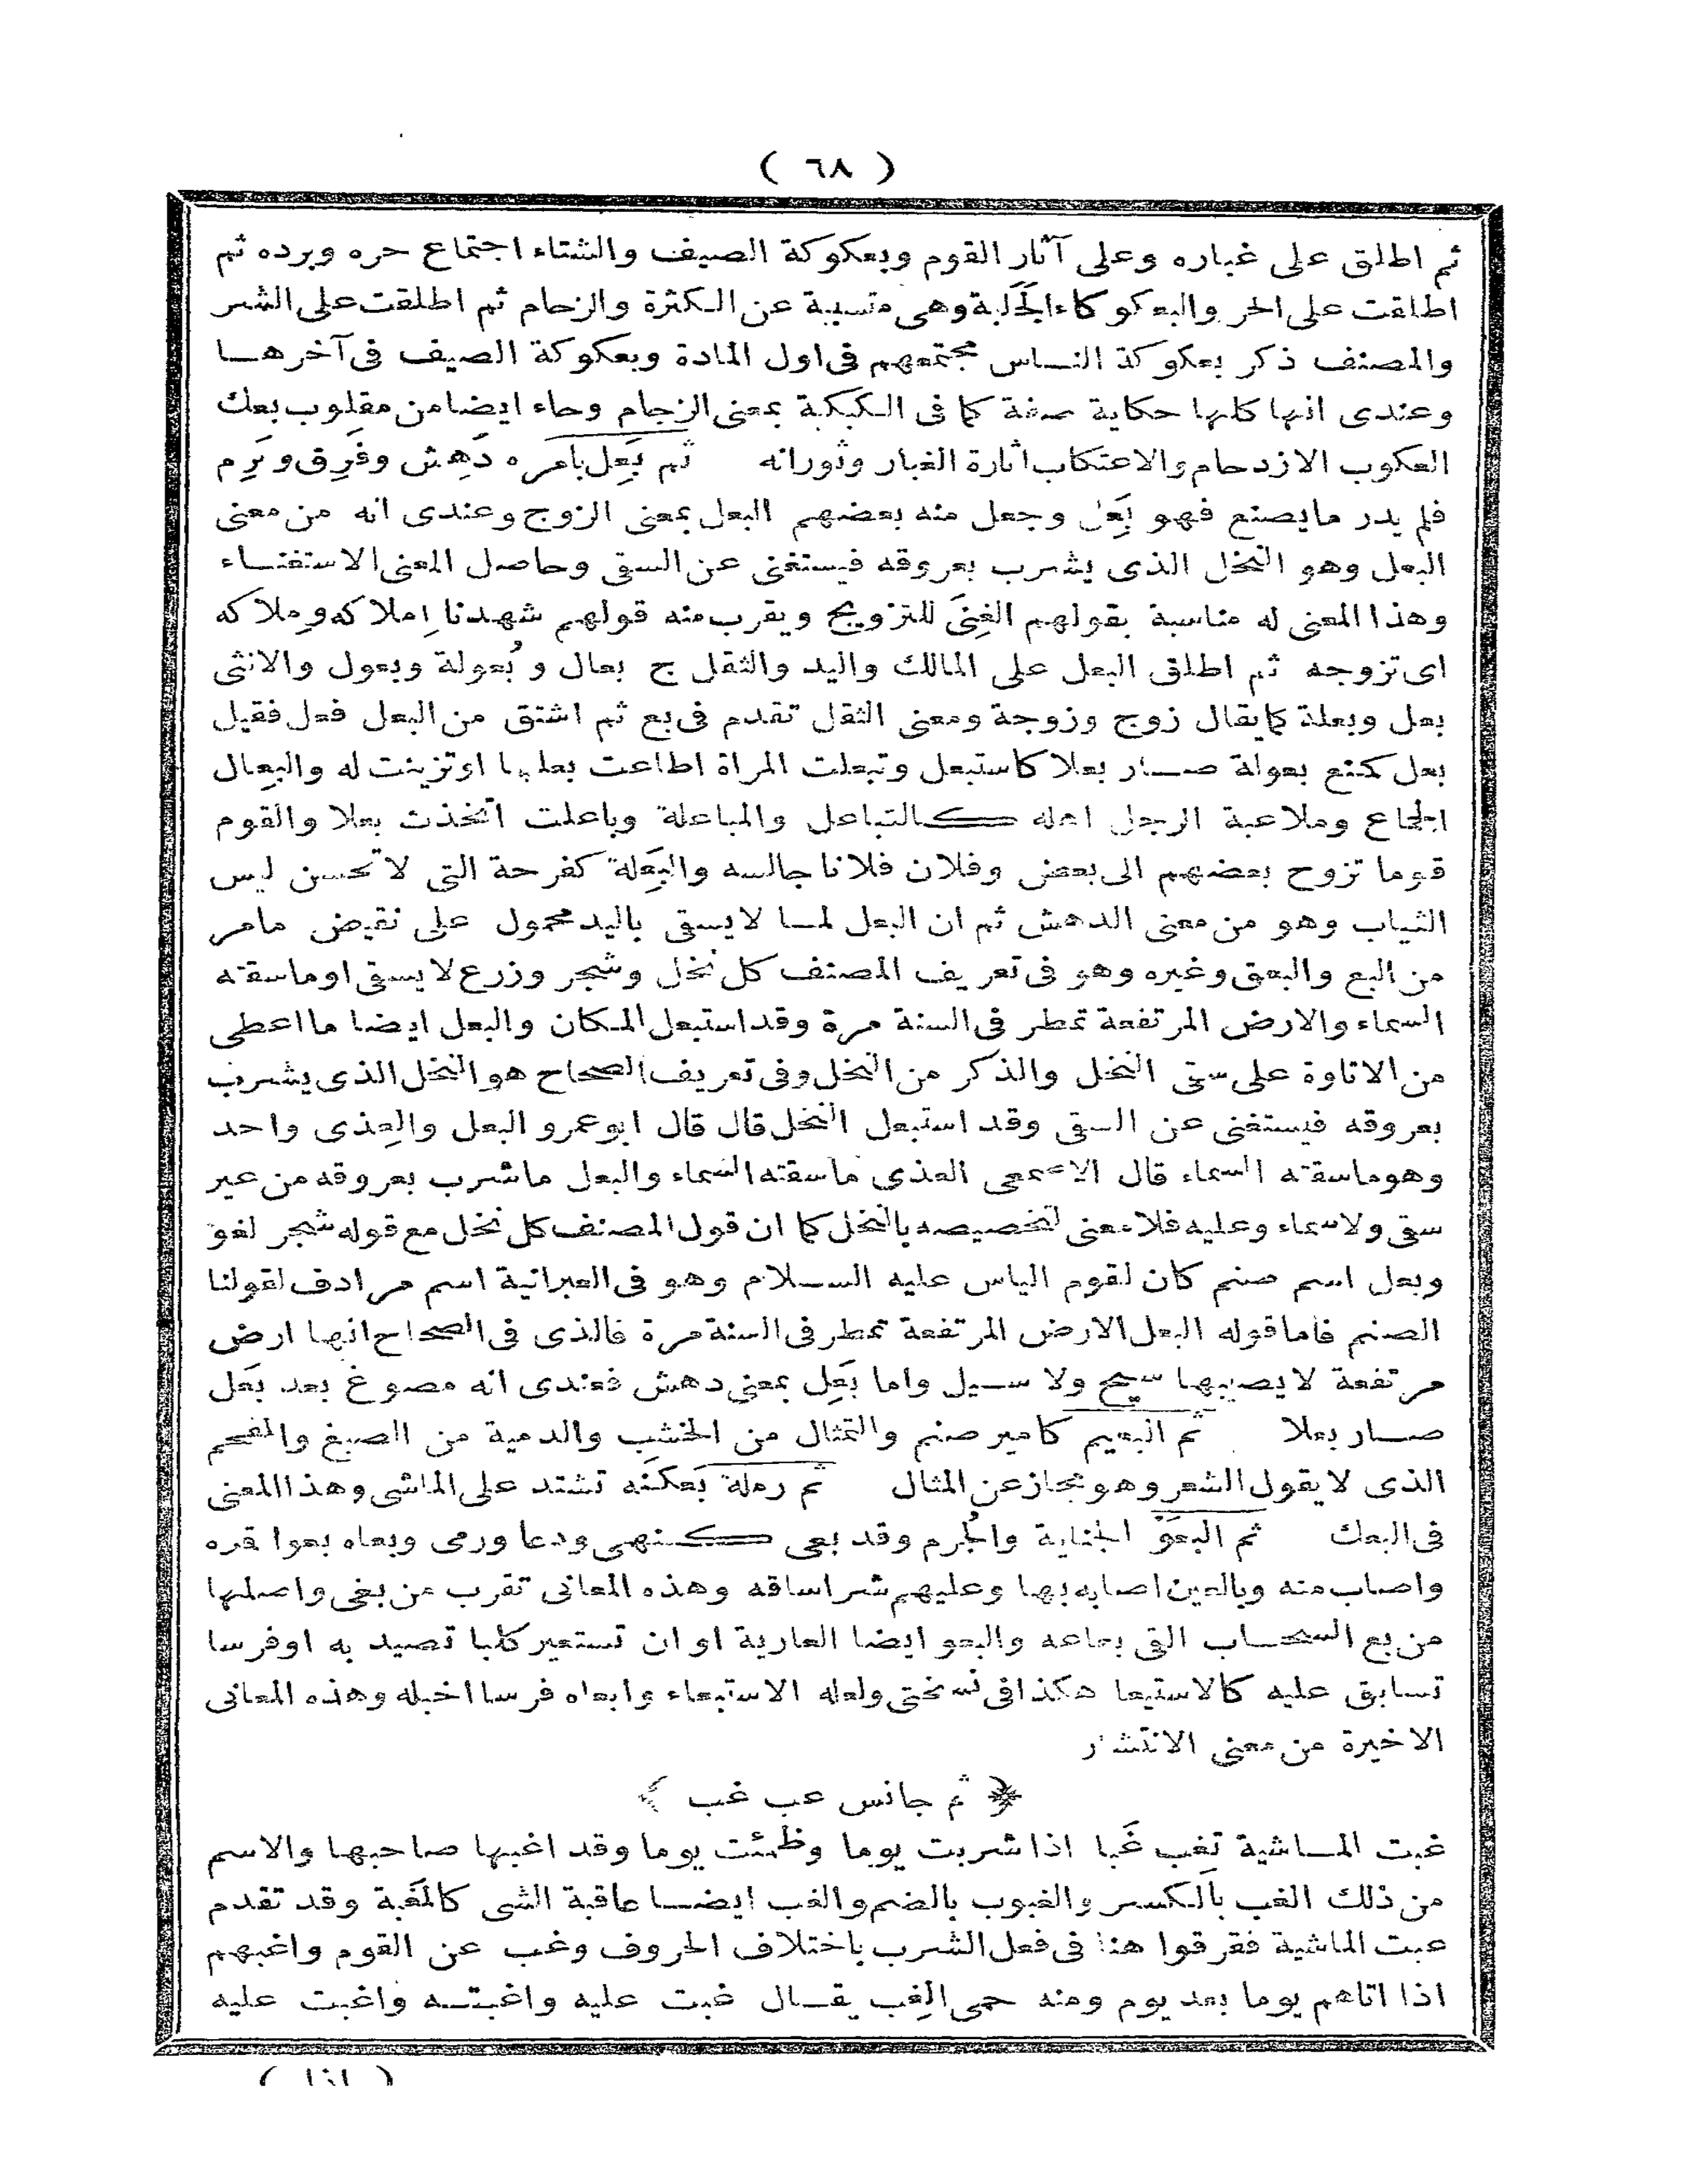 ( ٦٨ )
ثم اطلق على غباره وعلى آثار القوم وبعكوكة الصيف والشتاء اجتماع حره وبرده ثم
اطلقت على الحر والبعكوكاء الجَلَبة وهى متسببة عن الكثرة والزحام ثم اطلقت على الشر
والمصنف ذكر بعكوكة الناس مجتمعهم فى اول المادة وبعكوكة الصيف فى آخرها
وعندى انها كلها حكاية صفة كما فى الكبكبة بمعنى الزحام وجاء ايضا من مقلوب بعك
العكوب الازدحام والاعتكاب اثارة الغبار وثورانه ثم بَعِل بامره دَهِش وفَرِق وبَرِم
فلم يدر ما يصنع فهو بَعِل وجعل منه بعضهم البعل بمعنى الزوج وعندى انه من معنى
البعل وهو النخل الذى يشرب بعروقه فيستغنى عن السقى وحاصل المعنى الاستغناء
وهذا المعنى له مناسبة بقولهم الغِنَى للتزويج ويقرب منه قولهم شهدنا اِملاكه ومِلاكه
اى تزوجه ثم اطلق البعل على المالك واليد والثقل ج بعال وبُعولة وبعول والانثى
بعل وبعلة كما يقال زوج وزوجة ومعنى الثقل تقدم فى بع ثم اشتق من البعل فعل فقيل
بعل كمنع بعولة صار بعلا كاستبعل وتبعلت المراة اطاعت بعلها او تزينت له والبِعال
الجماع وملاعبة الرجل اهله كالتباعل والمباعلة وباعلت اتخذت بعلا والقوم
قوما تزوج بعضهم الى بعض وفلان فلانا جالسه والبَعِلة كفرحة التى لا تحسن لبس
الثياب وهو من معنى الدهش ثم ان البعل لما لا يسقى باليد محمول على نقيض مامر
من البع والبعق وغيره وهو فى تعريف المصنف كل نخل وشجر وزرع لا يسقى او ما سقته
السماء والارض المرتفعة تمطر فى السنة مرة وقد استبعل المكان والبعل ايضا ما اعطى
من الاتاوة على سقى النخل والذكر من النخل وفى تعريف الصحاح هو النخل الذى يشرب
بعروقه فيستغنى عن السقى وقد استبعل النخل قال قال ابو عمرو البعل والعِذى واحد
وهو ما سقته السماء قال الاصمعى العذى ما سقته السماء والبعل ما شرب بعروقه من غير
سقى ولا سماء وعليه فلا معنى لتخصيصه بالنخل كما ان قول المصنف كل نخل مع قوله شجر لغو
وبعل اسم صنم كان لقوم الياس عليه السلام وهو فى العبرانية اسم مرادف لقولنا
الصنم فاما قوله البعل الارض المرتفعة تمطر فى السنة مرة فالذى فى الصحاح انها ارض
مرتفعة لا يصيبها سيح ولا سيل واما بَعِل بمعنى دهش فعندى انه مصوغ بعد بَعَل
صار بعلا ثم البعيم كامير صنم والتمثال من الخشب والدمية من الصبغ والمفحم
الذى لا يقول الشعر وهو مجاز عن المثال ثم رملة بَعكَنة تشتد على الماشى وهذا المعنى
فى البعك ثم البَعْوُ الجناية والجُرم وقد بعى كنهى ودعا ورمى وبعاه بعوا قمره
واصاب منه وبالعين اصابه بها وعليهم شرا ساقه وهذه المعانى تقرب من بغى واصلها
من بع السحاب القى بعاعه والبعو ايضا العارية او ان تستعير كلبا تصيد به او فرسا
تسابق عليه كالاستبعا هكذا فى نسختى ولعله الاستبعاء وابعاه فرسا اخبله وهذه المعانى
الاخيرة من معنى الانتشار
﴿ ثم جانس عب غب ﴾
غبت الماشية تغِب غَبا اذا شربت يوما وظمئت يوما وقد اغبها صاحبها والاسم
من ذلك الغب بالكسر والغبوب بالضم والغب ايضا عاقبة الشى كالمَغَبة وقد تقدم
عبت الماشية ففرقوا هنا فى فعل الشرب باختلاف الحروف وغب عن القوم واغبهم
اذا اتاهم يوما بعد يوم ومنه حمى الغِب يقال غبت عليه واغبته واغبت عليه